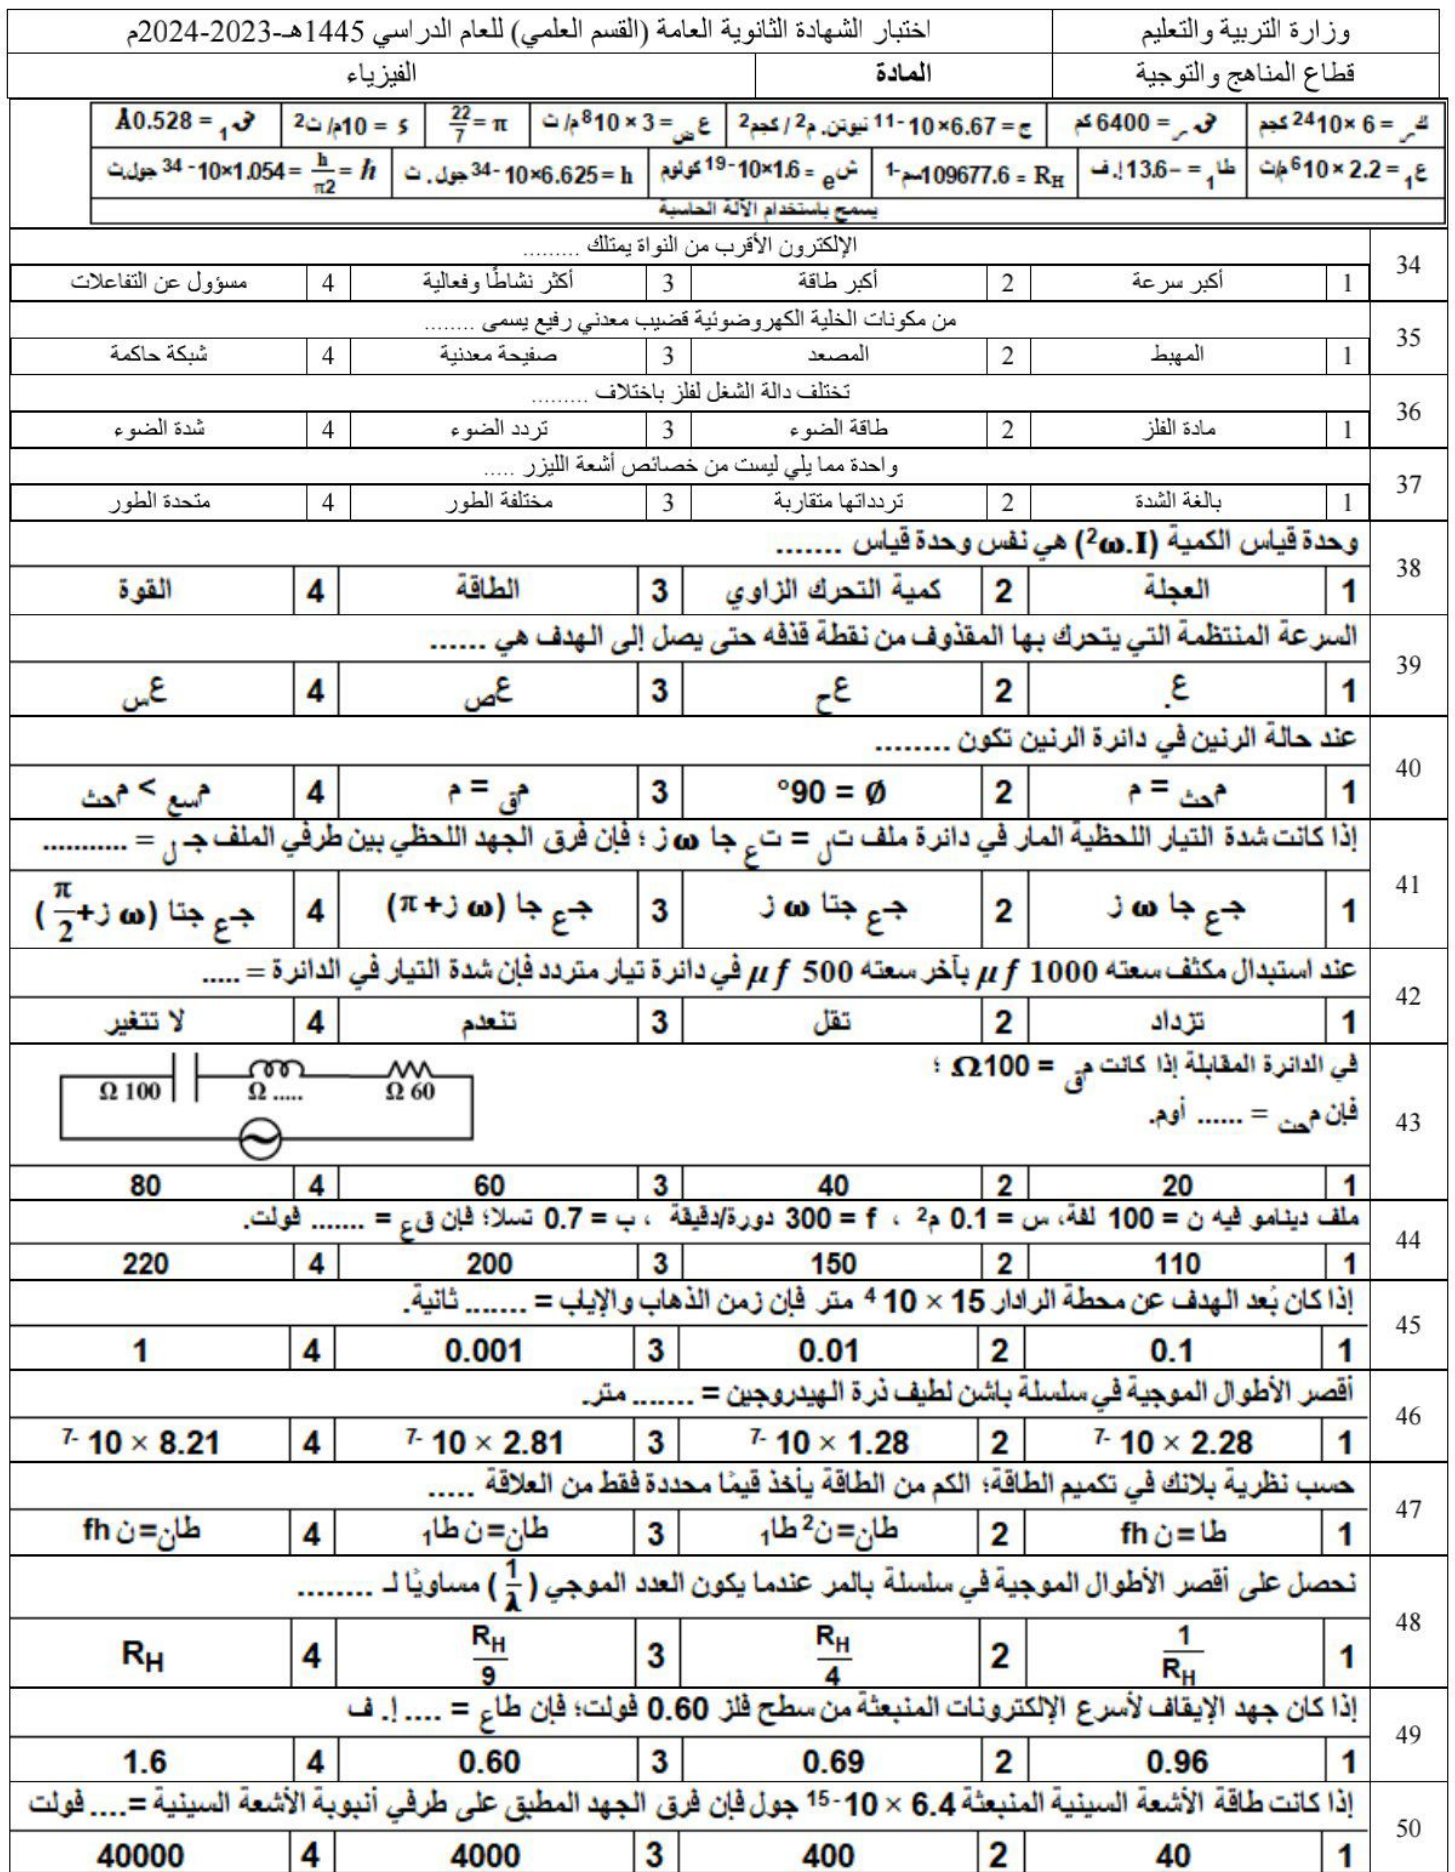 وزارة التربية والتعليم اختبار الشهادة الثانوية العامة (القسم العلمي) للعام الدراسي 1445هـ-2023-2024م
قطاع المناهج والتوجية المادة الفيزياء
كـر = 6 ×10^24 كجم نق ر = 6400 كم ج = 6.67×10^-11 نيوتن. م^2 / كجم^2 ع ض = 3 × 10^8 م/ ث π = 22/7 ء = 10م/ ث^2 نق 1 = 0.528Å
ع 1 = 2.2 × 10^6 م/ث طا 1 = -13.6 إ. ف R_H = 109677.6سم^-1 ش e = 1.6×10^-19 كولوم h = 6.625×10^-34 جول. ث ℏ = h/π2 = 1.054×10^-34 جول.ث
يسمح باستخدام الآلة الحاسبة
34 الإلكترون الأقرب من النواة يمتلك .........
1 أكبر سرعة 2 أكبر طاقة 3 أكثر نشاطًا وفعالية 4 مسؤول عن التفاعلات
35 من مكونات الخلية الكهروضوئية قضيب معدني رفيع يسمى ........
1 المهبط 2 المصعد 3 صفيحة معدنية 4 شبكة حاكمة
36 تختلف دالة الشغل لفلز باختلاف .........
1 مادة الفلز 2 طاقة الضوء 3 تردد الضوء 4 شدة الضوء
37 واحدة مما يلي ليست من خصائص أشعة الليزر .....
1 بالغة الشدة 2 تردداتها متقاربة 3 مختلفة الطور 4 متحدة الطور
38 وحدة قياس الكمية (ω.I^2) هي نفس وحدة قياس .......
1 العجلة 2 كمية التحرك الزاوي 3 الطاقة 4 القوة
39 السرعة المنتظمة التي يتحرك بها المقذوف من نقطة قذفه حتى يصل إلى الهدف هي ......
1 ع. 2 ع ح 3 ع ص 4 ع س
40 عند حالة الرنين في دائرة الرنين تكون ........
1 م حث = م 2 Ø = 90° 3 م ق = م 4 م سع > م حث
41 إذا كانت شدة التيار اللحظية المار في دائرة ملف ت ل = ت ع جا ω ز ؛ فإن فرق الجهد اللحظي بين طرفي الملف جـ ل = ...........
1 جـ ع جا ω ز 2 جـ ع جتا ω ز 3 جـ ع جا (ω ز+π) 4 جـ ع جتا (ω ز+π/2)
42 عند استبدال مكثف سعته 1000 μf بآخر سعته 500 μf في دائرة تيار متردد فإن شدة التيار في الدائرة = .....
1 تزداد 2 تقل 3 تنعدم 4 لا تتغير
43 في الدائرة المقابلة إذا كانت م ق = 100Ω ؛
فإن م حث = ...... أوم.
Ω 100 Ω ..... Ω 60
1 20 2 40 3 60 4 80
44 ملف دينامو فيه ن = 100 لفة، س = 0.1 م^2 ، f = 300 دورة/دقيقة ، ب = 0.7 تسلا؛ فإن ق ع = ....... فولت.
1 110 2 150 3 200 4 220
45 إذا كان بُعد الهدف عن محطة الرادار 15 × 10^4 متر فإن زمن الذهاب والإياب = ....... ثانية.
1 0.1 2 0.01 3 0.001 4 1
46 أقصر الأطوال الموجية في سلسلة باشن لطيف ذرة الهيدروجين = ....... متر.
1 2.28 × 10^-7 2 1.28 × 10^-7 3 2.81 × 10^-7 4 8.21 × 10^-7
47 حسب نظرية بلانك في تكميم الطاقة؛ الكم من الطاقة يأخذ قيمًا محددة فقط من العلاقة .....
1 طا =ن fh 2 طان=ن^2 طا1 3 طان=ن طا1 4 طان=ن fh
48 نحصل على أقصر الأطوال الموجية في سلسلة بالمر عندما يكون العدد الموجي (1/λ) مساويًا لـ ........
1 1/R_H 2 R_H/4 3 R_H/9 4 R_H
49 إذا كان جهد الإيقاف لأسرع الإلكترونات المنبعثة من سطح فلز 0.60 فولت؛ فإن طا ع = .... إ. ف
1 0.96 2 0.69 3 0.60 4 1.6
50 إذا كانت طاقة الأشعة السينية المنبعثة 6.4 × 10^-15 جول فإن فرق الجهد المطبق على طرفي أنبوبة الأشعة السينية =.... فولت
1 40 2 400 3 4000 4 40000